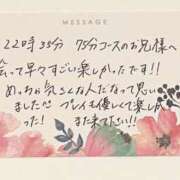 MESSAGE
22時35分 75分コースのお兄様へ
会って早々すごい楽しかったです!!
めっちゃ気さくな人だなって思い
ましたෆ プレイも優しくて楽しか
った! また来てださい!!